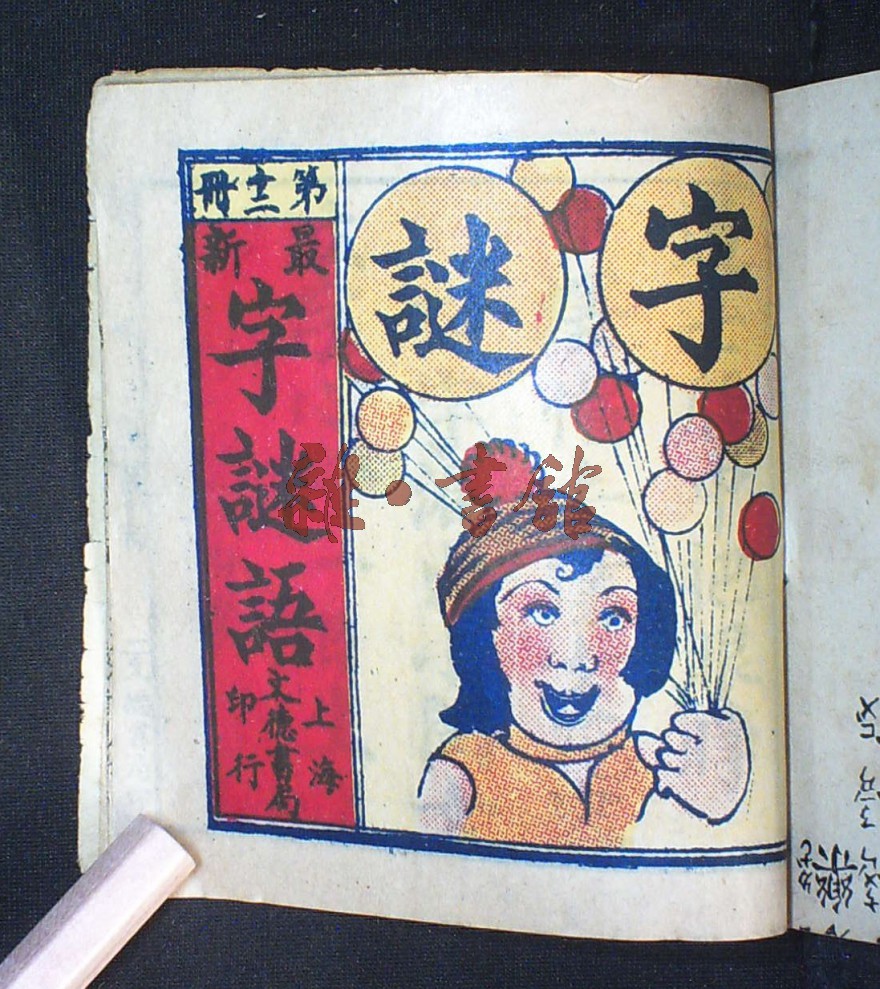 字謎
第十二冊
最新
字謎語
上海
文德書局
印行
雜·書館